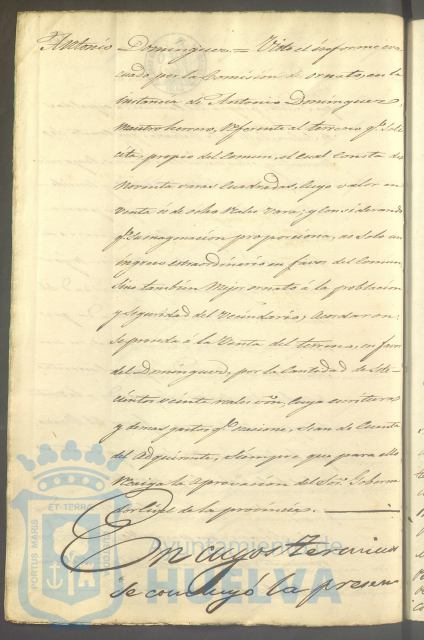 Antonio Dominguez = Visto el informe eva
cuado por la Comision de ornato, en la
instancia de Antonio Dominguez,
maestro herrero, referente al terreno qe. soli
cita propio del Comun, el cual consta de
Noventa varas cuadradas, cuyo valor en
venta es de ocho reales vara; y considerando
qe. su enagenacion proporciona, no solo un
ingreso estraordinario en favor del Comun,
sino tambien mejor ornato á la poblacion
y seguridad del Vecindario; Acordaron:
se proceda á la Venta del terreno, en favor
del Dominguez, por la Cantidad de sete-
cientos veinte reales von, cuya escritura
y demas gastos qe. ocasione, sean de Cuenta
del Adquirente, siempre que para ello
recaiga la Aprovacion del Sor. Goberna
dor Civil de la provincia.
En cuyos terminos
se concluyó la presen
PORTUS MARIS
ET TERRAE
CUSTODIA
Ayuntamiento de
HUELVA